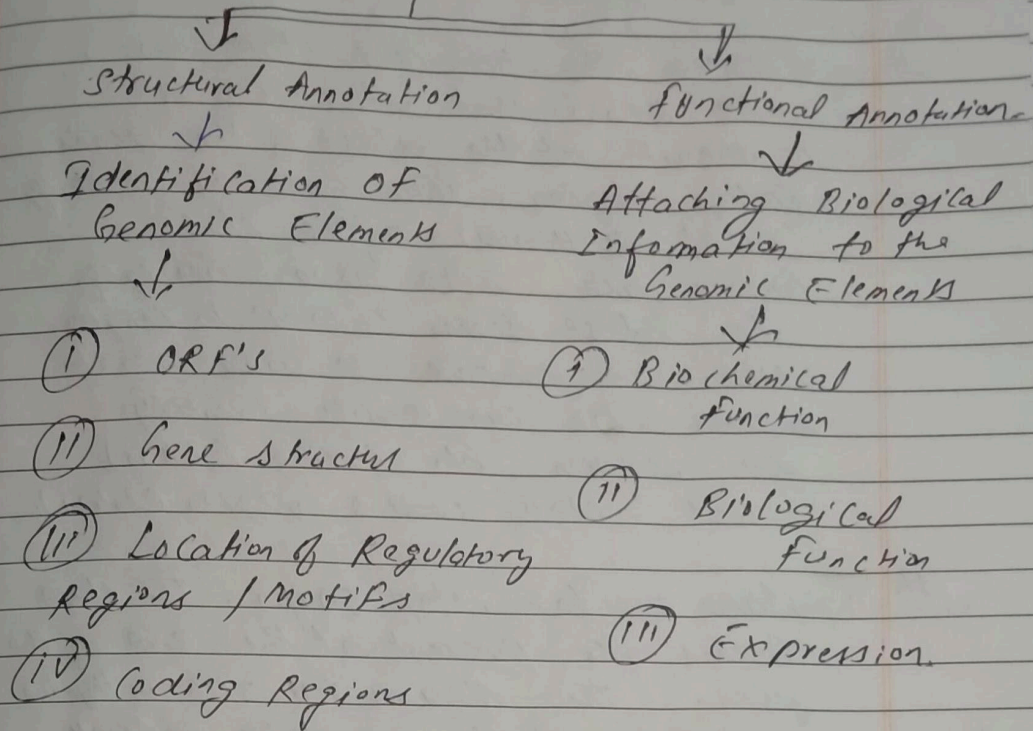 Structural Annotation
Identification of
Genomic Elements
I ORF's
II Gene structur
III Location of Regulatory
Regions / Motifs
IV Coding Regions
functional Annotation.
Attaching Biological
Information to the
Genomic Elements
I Biochemical
function
II Biological
function
III Expression.